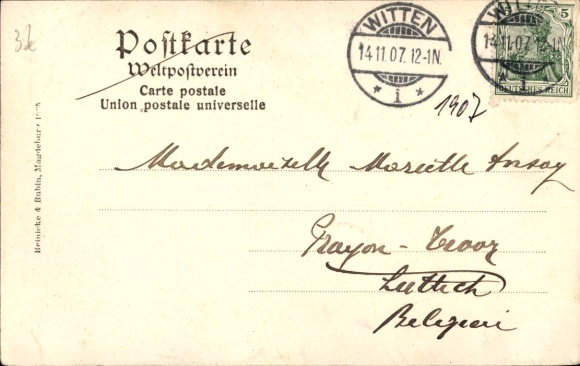 32
Postkarte
Weltpostverein
Carte postale
Union postale universelle
WITTEN
14.11.07. 12-1N.
* 1 *
WITTEN
14.11.07. 12-1N.
5
DEUTSCHES REICH
1907
Reinicke & Rubin, Magdeburg
Mademoiselle Marette Ansay
Lüttich
Belgien